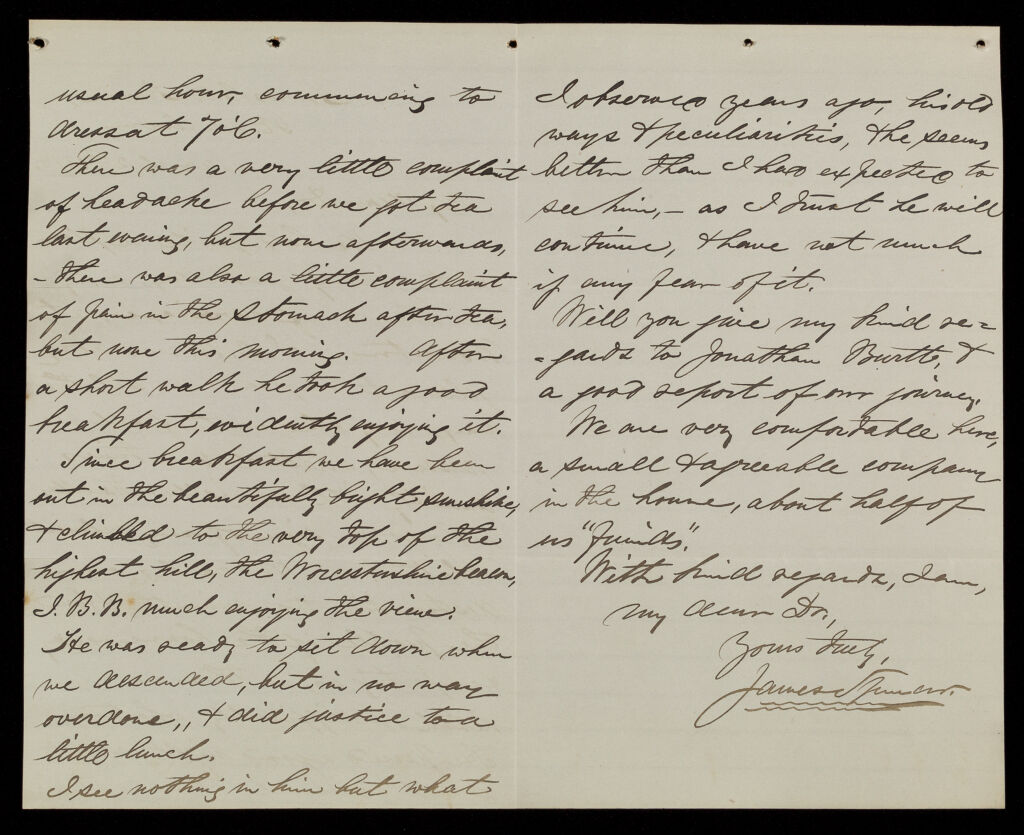 usual hour, commencing to
dress at 7 o'C.
There was a very little complaint
of headache before we got tea
last evening, but none afterwards,
- there was also a little complaint
of pain in the stomach after tea,
but none this morning. After
a short walk he took a good
breakfast, evidently enjoying it.
Since breakfast we have been
out in the beautifully bright sunshine,
& climbed to the very top of the
highest hill, the Worcestershire beacon,
J. B. B. much enjoying the view.
He was ready to sit down when
we descended, but in no way
overdone, & did justice to a
little lunch.
I see nothing in him but what
I observed years ago, his old
ways & peculiarities, & he seems
better than I had expected to
see him, - as I trust he will
continue, & have not much
if any fear of it.
Will you give my kind re=
=gards to Jonathan Burtt, &
a good report of our journey.
We are very comfortable here,
a small & agreeable company
in the house, about half of
us "Friends".
With kind regards, I am,
my dear Dr.,
Yours truly,
James